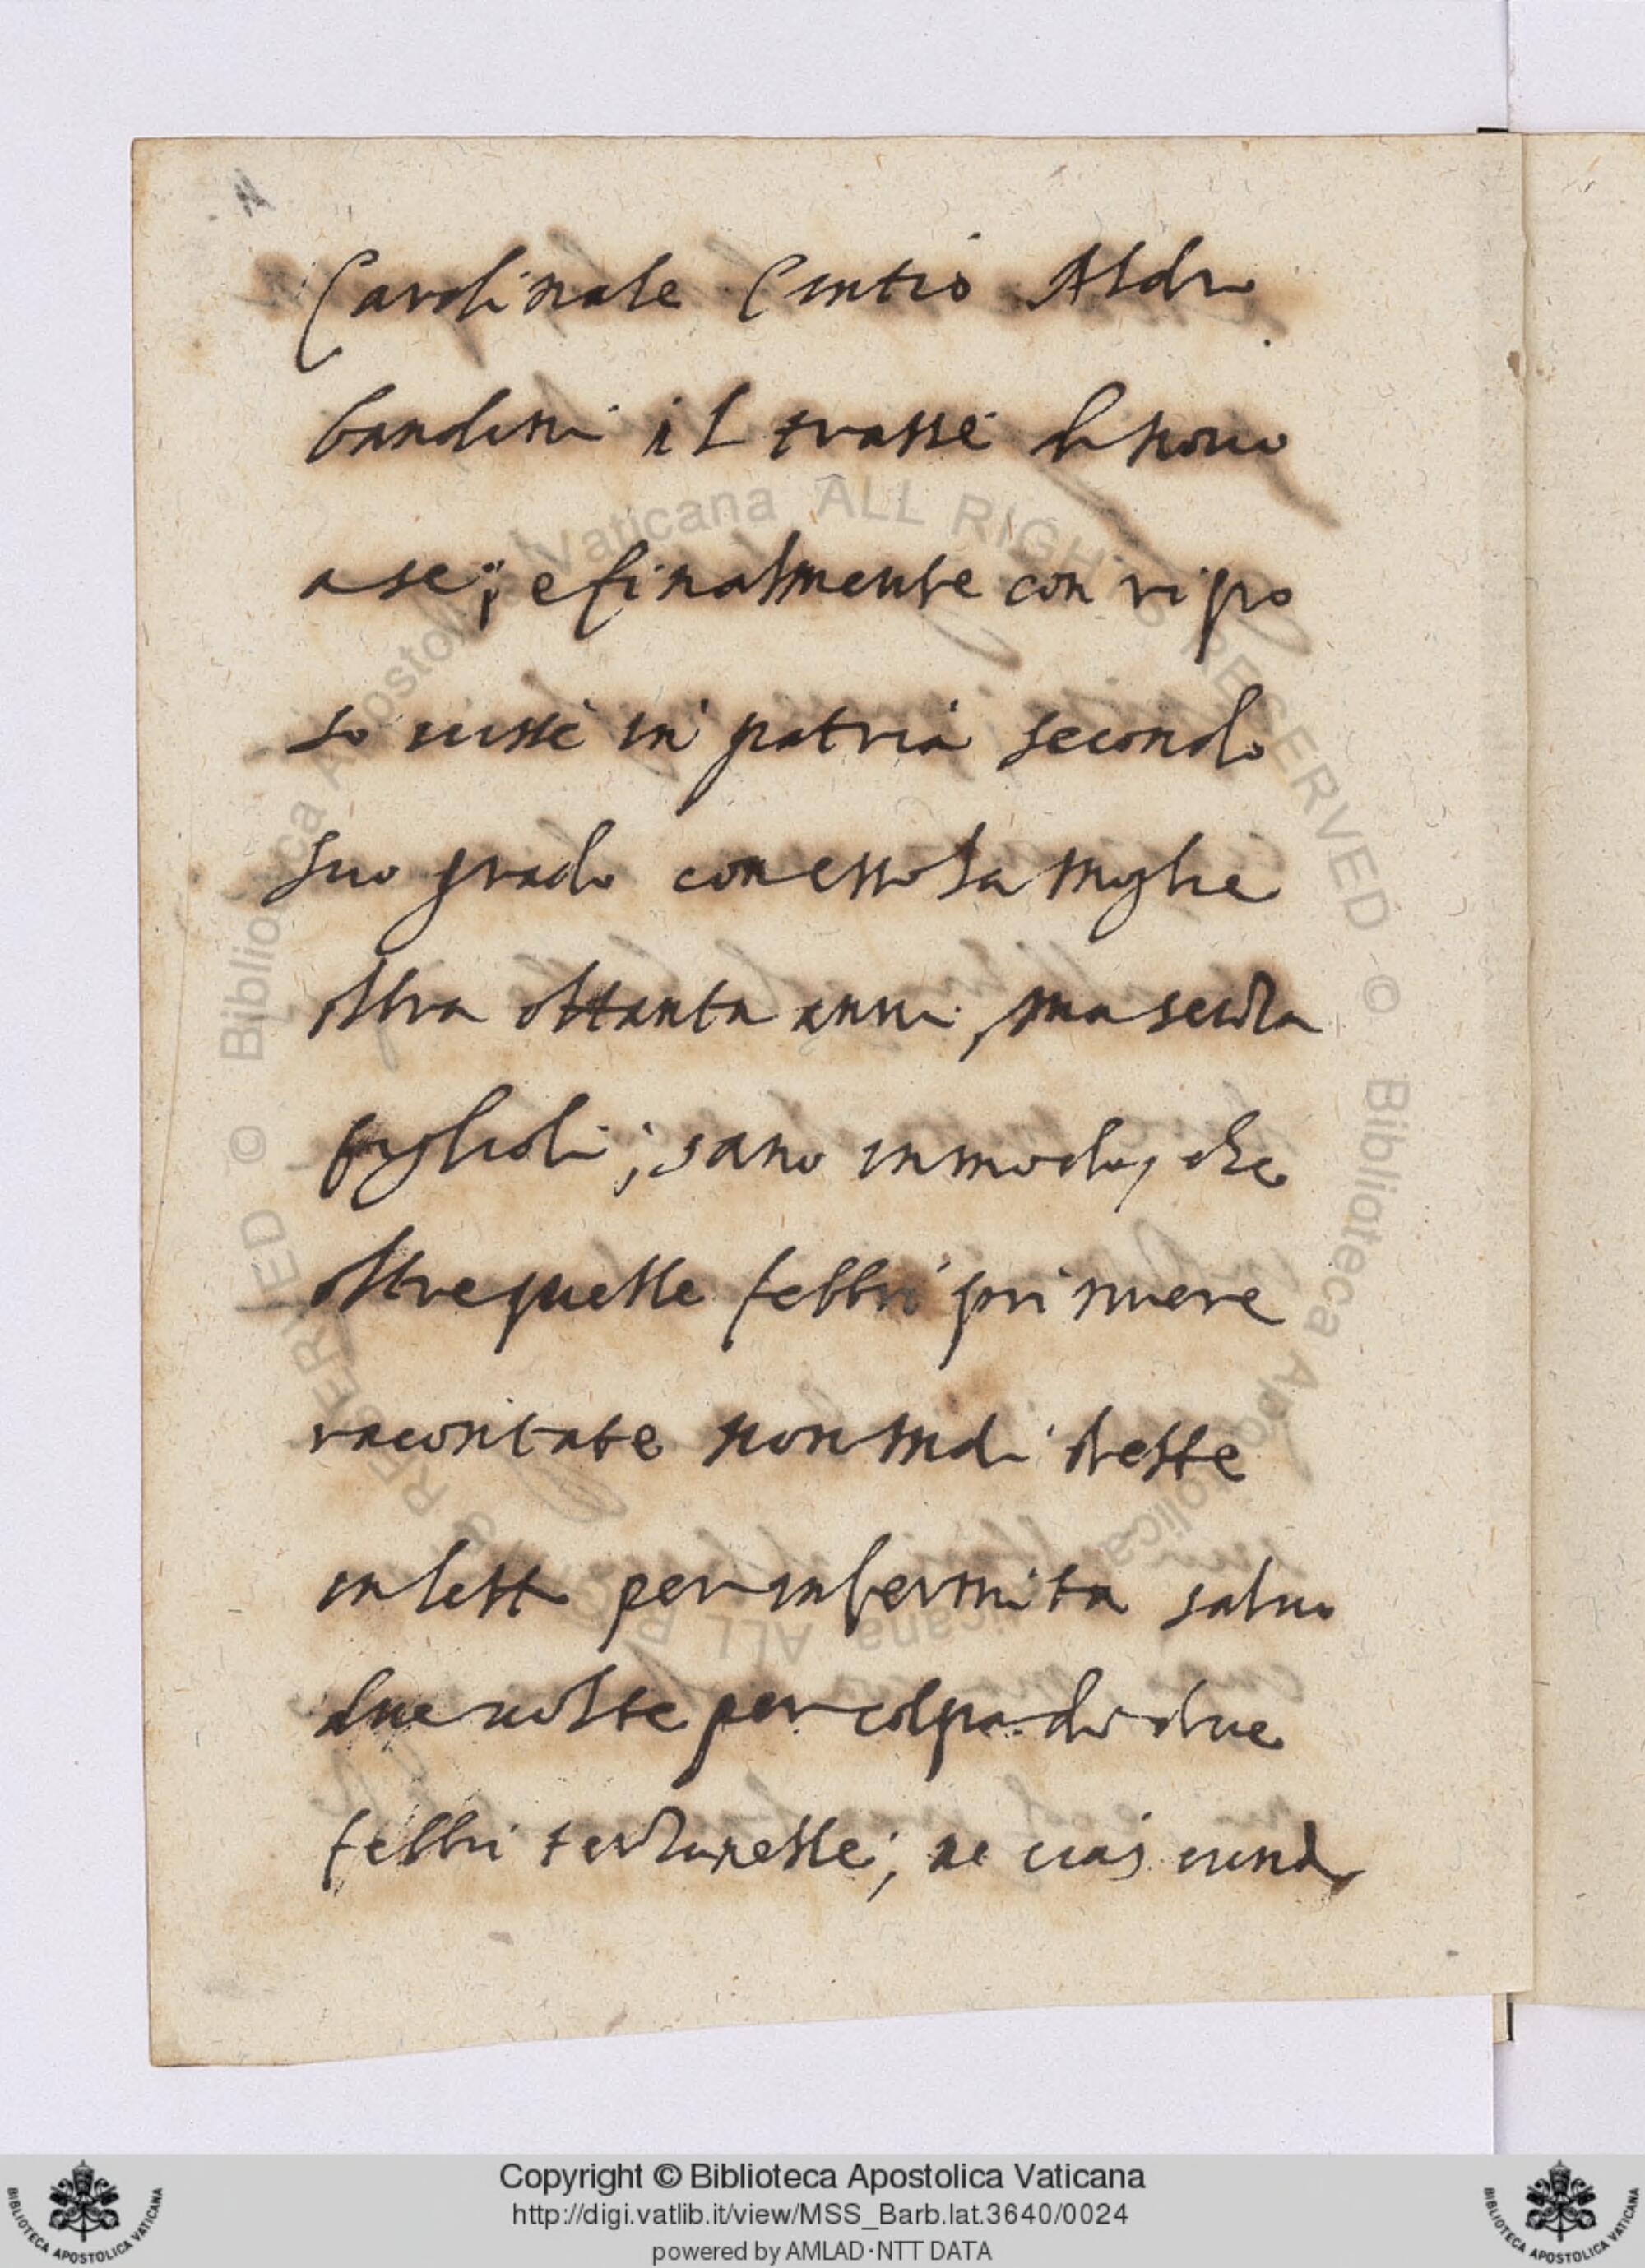 Cardinale Cintio Aldo
bandini il trasse di nouo
a se; e finalmente con ripo
so uisse in patria secondo
suo grado con esso la moglie
oltra ottanta anni, ma senza
figlioli; sano in modo, che
oltre quelle febbri primiere
racontate non mai stette
in letto per infermita saluo
due uolte per colpa di due
febbri terzanelle; ne crai
Biblioteca Apostolica Vaticana ALL RIGHTS RESERVED ©
Copyright © Biblioteca Apostolica Vaticana
http://digi.vatlib.it/view/MSS_Barb.lat.3640/0024
powered by AMLAD·NTT DATA
BIBLIOTECA APOSTOLICA VATICANA
BIBLIOTECA APOSTOLICA VATICANA